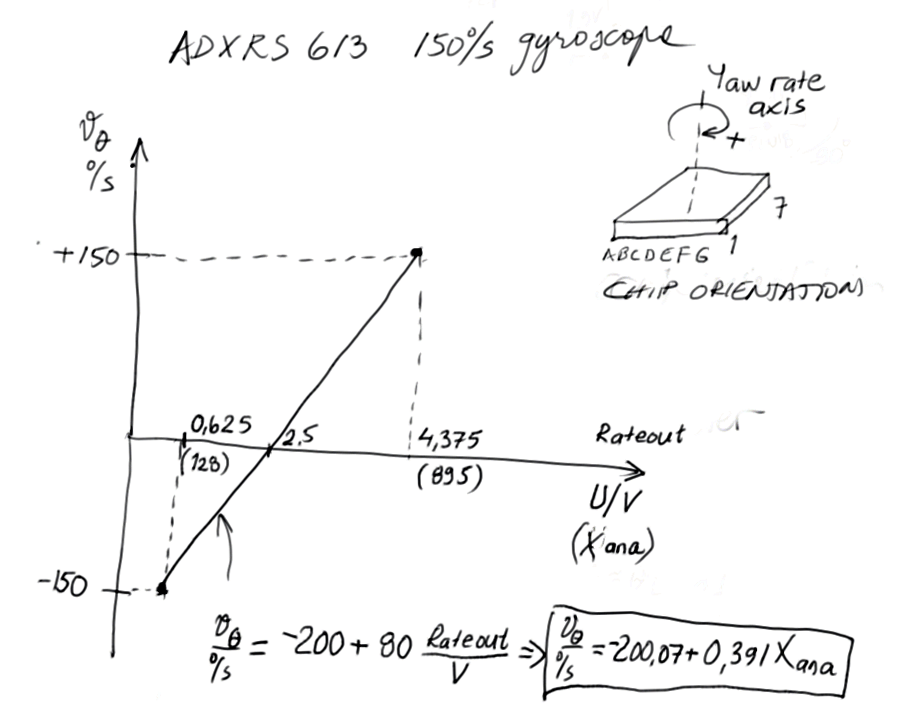 ADXRS 613 150°/s gyroscope
Yaw rate
axis
+
7
ABCDEFG 1
CHIP ORIENTATION
ϑθ
°/s
+150
0,625
(128)
2,5
4,375
(895)
Rateout
U/V
(Xana)
-150
ϑθ / °/s = -200 + 80 Rateout / V ⇒ ϑθ / °/s = -200,07 + 0,391 Xana